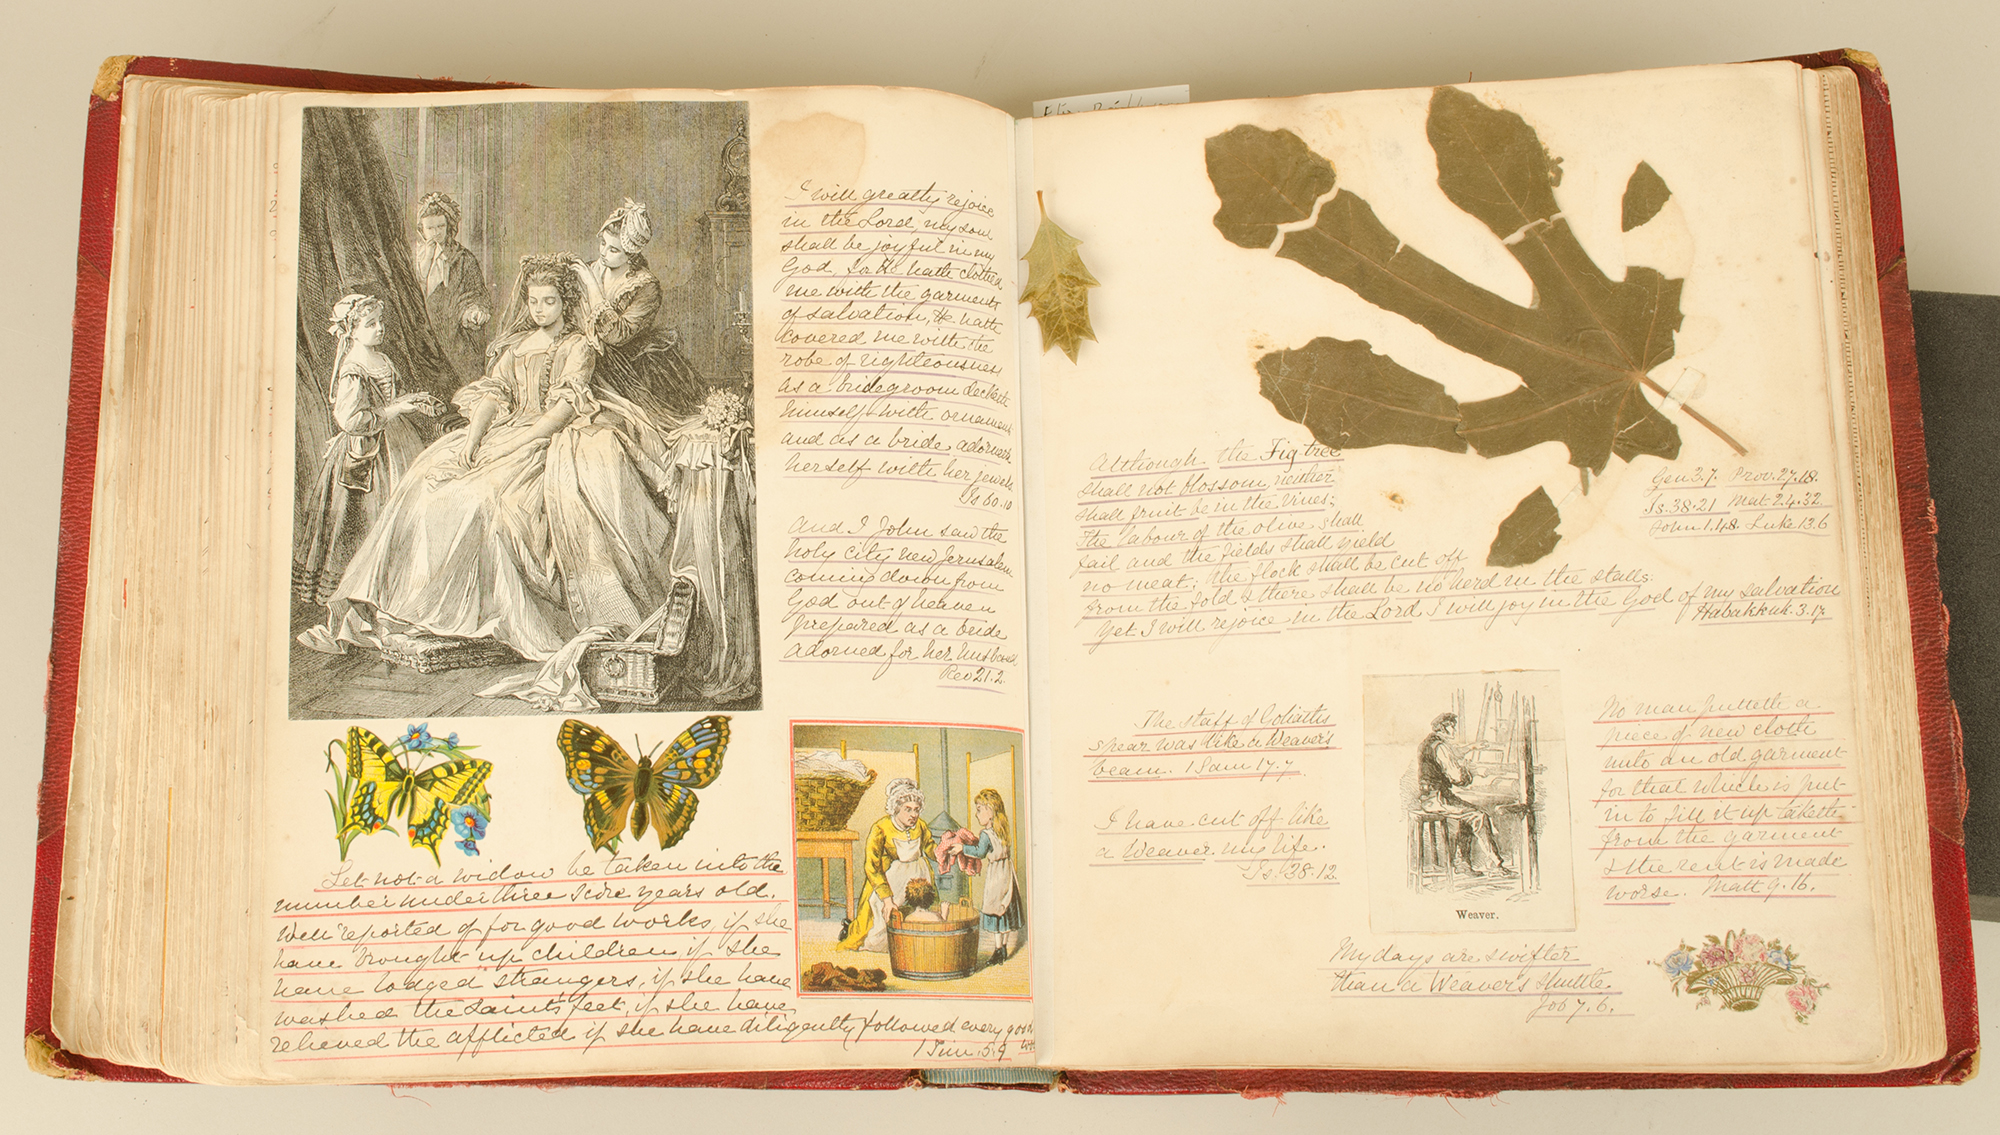 I will greatly rejoice
in the Lord, my soul
shall be joyful in my
God, for He hath clothed
me with the garments
of salvation, He hath
covered me with the
robe of righteousness
as a bridegroom decketh
himself with ornaments
and as a bride adorneth
herself with her jewels
Is 60.10
And I John saw the
holy city new Jerusalem
coming down from
God out of heaven
prepared as a bride
adorned for her husband
Rev 21.2.
Let not a widow be taken into the
number under three score years old.
Well reported of for good works, if she
have brought up children if she
have lodged strangers, if she have
washed the Saints feet, if she have
relieved the afflicted if she have diligently followed every good
1 Tim. 5.9
Although the Fig tree
shall not blossom, neither
shall fruit be in the vines;
The labour of the olive shall
fail and the fields shall yield
no meat; the flock shall be cut off
from the fold & there shall be no herd in the stalls:
Yet I will rejoice in the Lord I will joy in the God of my salvation
Habakkuk. 3.17
Gen 3.7. Prov. 27.18.
Is. 38.21 Mat 24.32
John 1.48. Luke 13.6
The staff of Goliaths
spear was like a Weaver's
beam. 1 Sam 17.7
I have cut off like
a Weaver my life.
Is. 38.12.
Weaver.
No man putteth a
piece of new cloth
unto an old garment
for that which is put
in to fill it up taketh
from the garment
& the rent is made
worse. Matt 9.16.
My days are swifter
than a Weaver's shuttle.
Job 7.6.